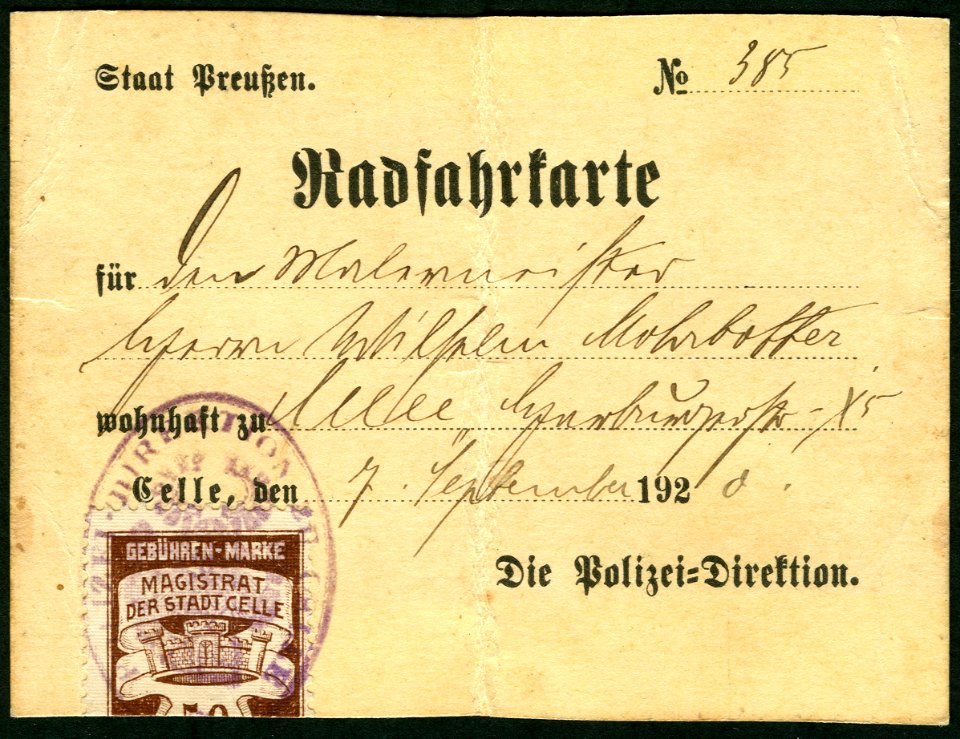 Staat Preußen.
№ 385
Radfahrkarte
für den Malermeister
Herrn Wilhelm Mohrbotter
wohnhaft zu Celle,
Celle, den 7. September 1920.
Die Polizei=Direktion.
GEBÜHREN-MARKE
MAGISTRAT
DER STADT CELLE
50